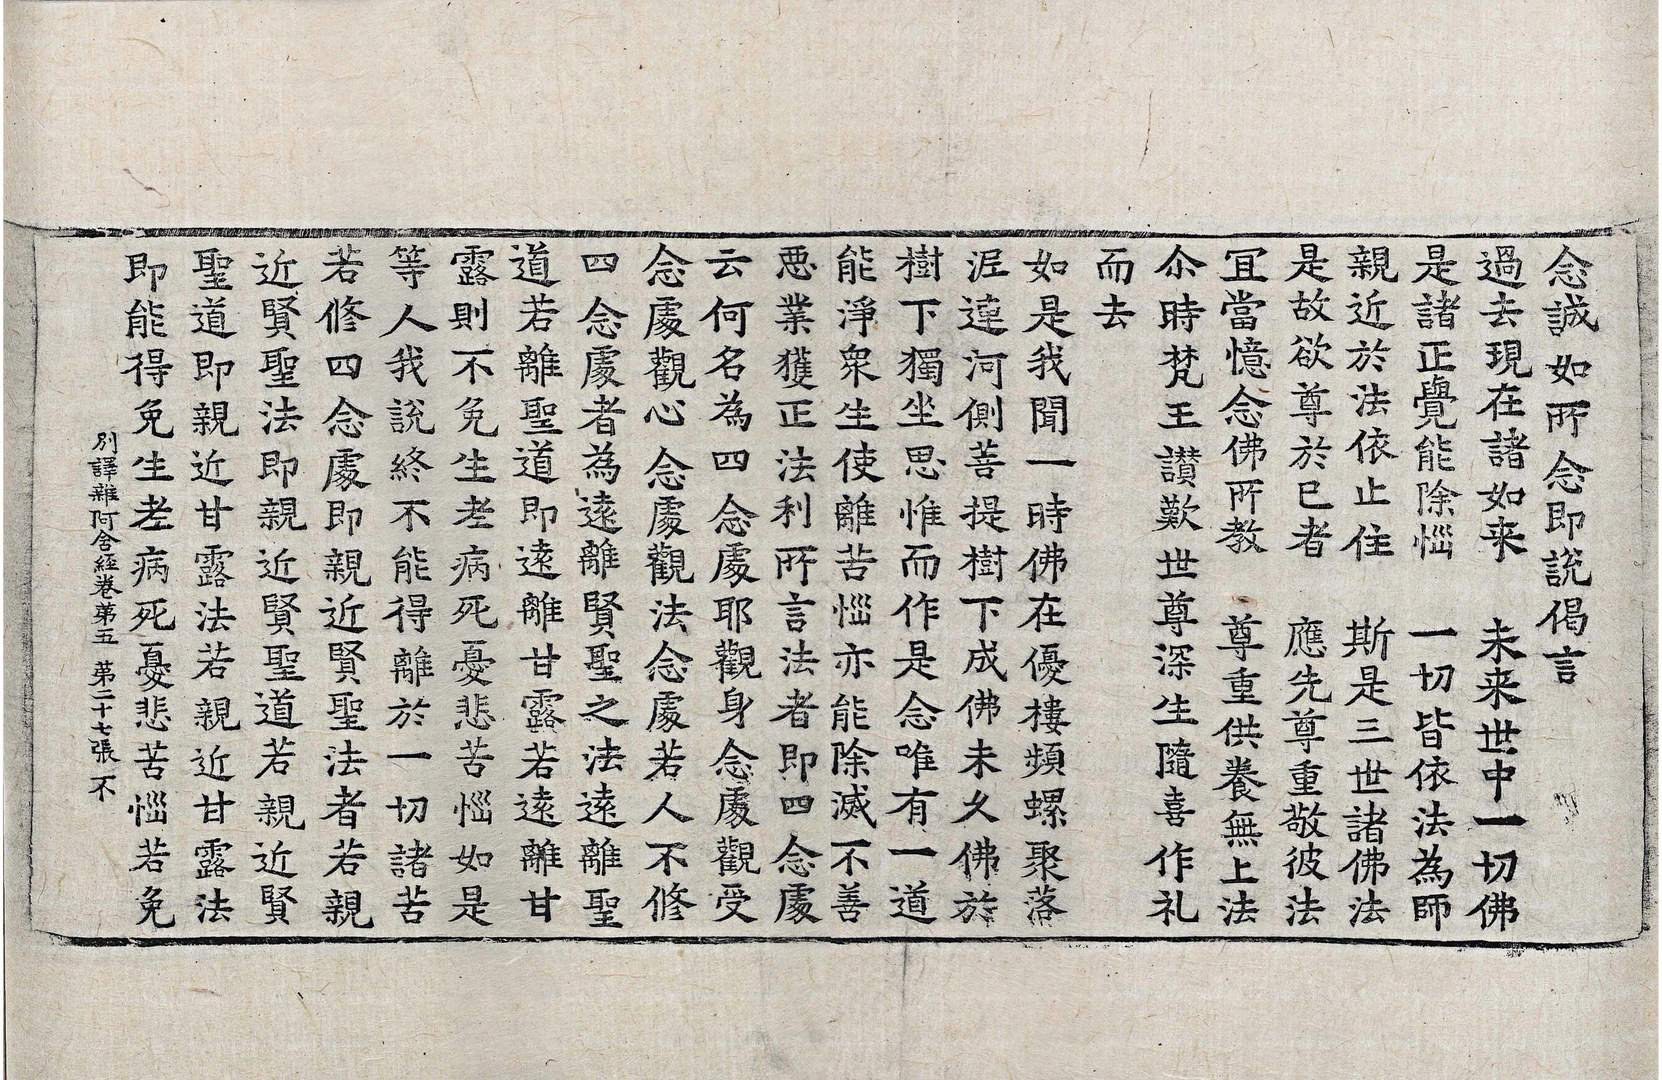 念誠如所念即說偈言
過去現在諸如来　未来世中一切佛
是諸正覺能除惱　一切皆依法為師
親近於法依止住　斯是三世諸佛法
是故欲尊於已者　應先尊重敬彼法
冝當憶念佛所教　尊重供養無上法
尒時梵王讃歎世尊深生隨喜作礼
而去
如是我聞一時佛在優樓頻螺聚落
泥連河側菩提樹下成佛未久佛於
樹下獨坐思惟而作是念唯有一道
能淨衆生使離苦惱亦能除滅不善
惡業獲正法利所言法者即四念處
云何名為四念處耶觀身念處觀受
念處觀心念處觀法念處若人不修
四念處者為遠離賢聖之法遠離聖
道若離聖道即遠離甘露若遠離甘
露則不免生老病死憂悲苦惱如是
等人我說終不能得離於一切諸苦
若修四念處即親近賢聖法者若親
近賢聖法即親近賢聖道若親近賢
聖道即親近甘露法若親近甘露法
即能得免生老病死憂悲苦惱若免
別譯雜阿含經卷第五　第二十七張　不